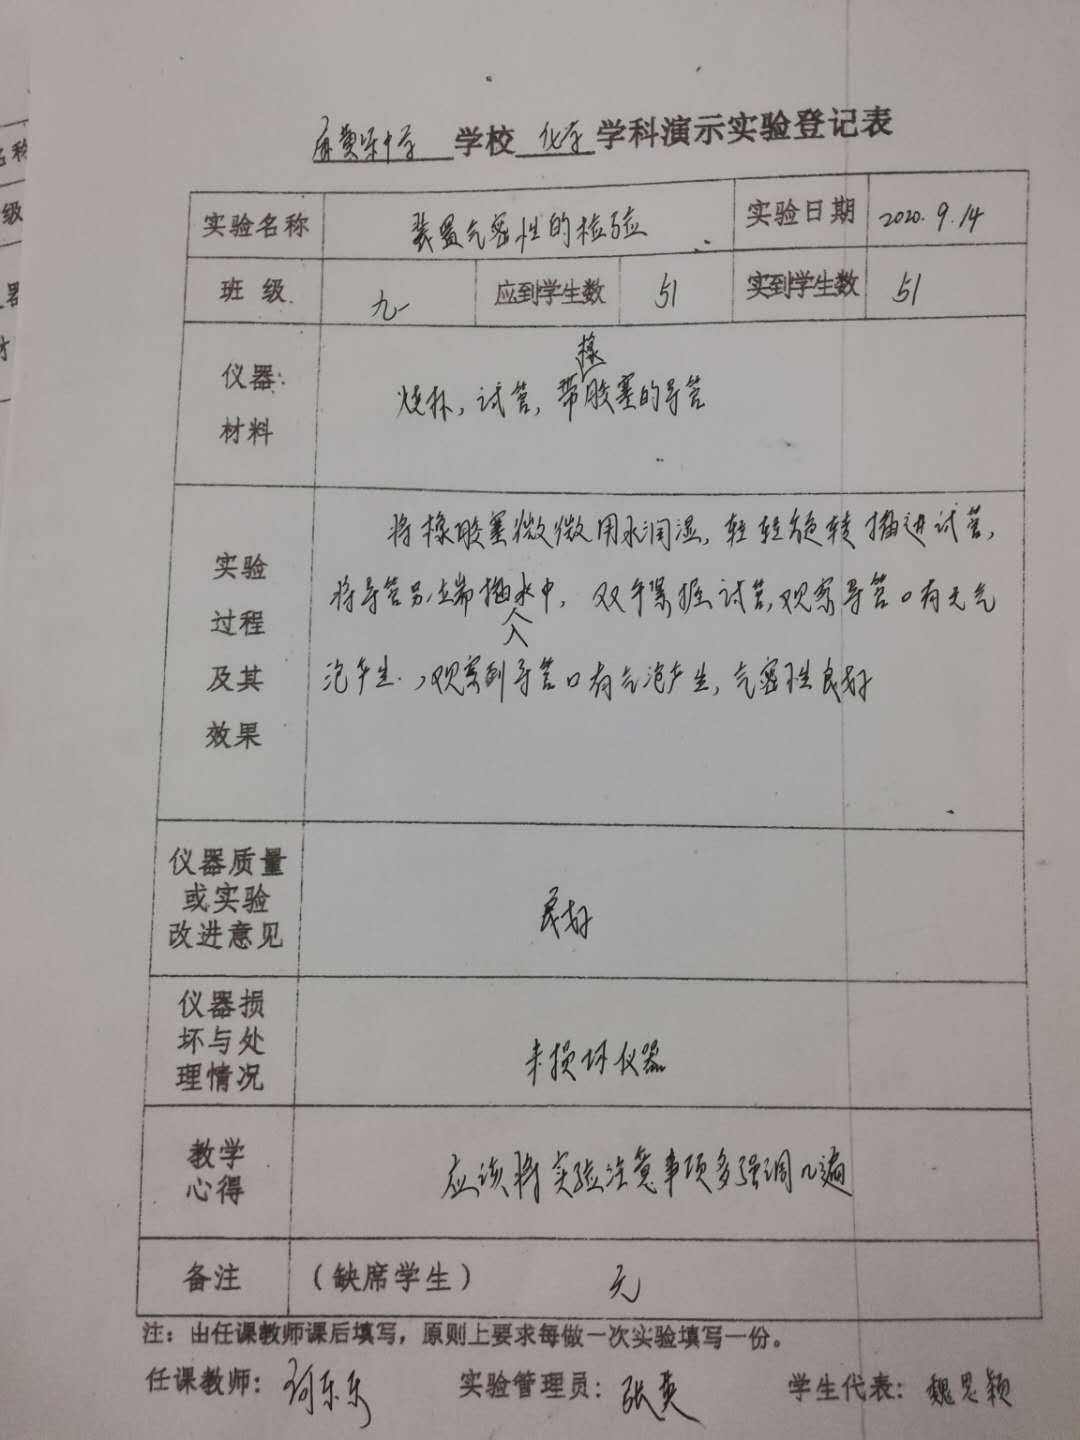 中学 学校 化学 学科演示实验登记表
实验名称 装置气密性的检验 实验日期 2020.9.14
班 级 九一 应到学生数 51 实到学生数 51
仪器:
材料
烧杯，试管，带橡胶塞的导管
实验
过程
及其
效果
将橡胶塞微微用水润湿，轻轻旋转插进试管，
将导管另一端插入水中，双手紧握试管，观察导管口有无气
泡产生.，观察到导管口有气泡产生，气密性良好
仪器质量
或实验
改进意见
良好
仪器损
坏与处
理情况
未损坏仪器
教学
心得
应该将实验注意事项多强调几遍
备注 （缺席学生） 无
注：由任课教师课后填写，原则上要求每做一次实验填写一份。
任课教师： 实验管理员：张 学生代表：魏思颖
名称
级
器
才